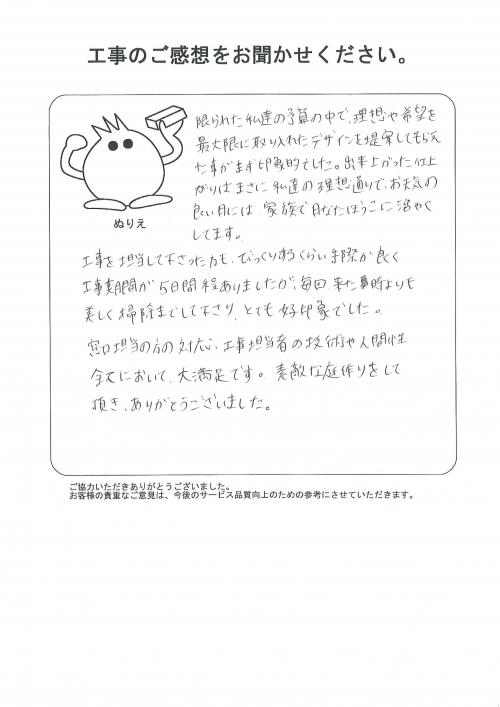 工事のご感想をお聞かせください。
限られた私達の予算の中で、理想や希望を
最大限に取り入れたデザインを提案してもらえ
た事がまず印象的でした。出来上がった仕上
がりはまさに私達の理想通りで、お天気の
良い日には、家族で日なたぼっこに
してます。
ぬりえ
工事を担当して下さった方も、びっくりするくらい手際が良く
工事期間が5日間程ありましたが、毎回来た時よりも
美しく掃除までして下さり、とても好印象でした。
窓口担当の方の対応、工事担当者の技術や人間性
全てにおいて、大満足です。素敵な庭作りをして
頂き、ありがとうございました。
ご協力いただきありがとうございました。
お客様の貴重なご意見は、今後のサービス品質向上のための参考にさせていただきます。